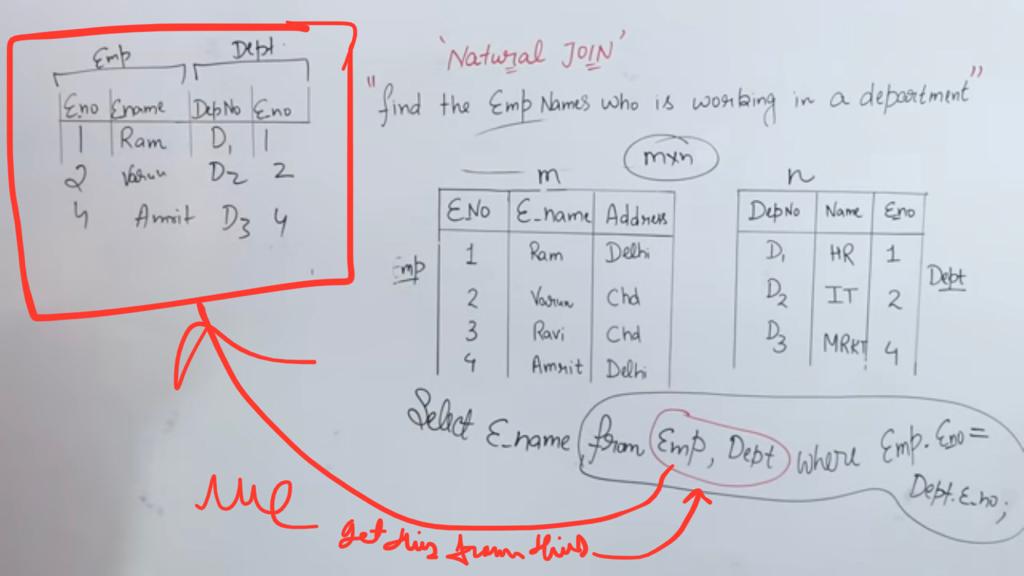 Emp Dept.
Eno Ename DepNo Eno
1 Ram D1 1
2 Varun D2 2
4 Amrit D3 4
'Natural JOIN'
"find the Emp Names who is working in a department"
mxn
m
E.No E_name Address
Emp
1 Ram Delhi
2 Varun Chd
3 Ravi Chd
4 Amrit Delhi
n
DepNo Name Eno
D1 HR 1
Dept
D2 IT 2
D3 MRKT 4
Select E_name from Emp, Dept where Emp.Eno=
Dept.E_no;
we
get this from this